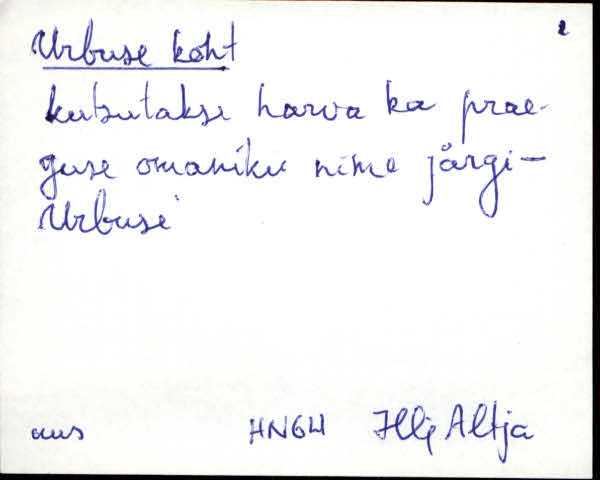 2
Urbuse koht
kutsutakse harva ka prae-
guse omaniku nime järgi -
Urbuse
HNGH Illi Altja